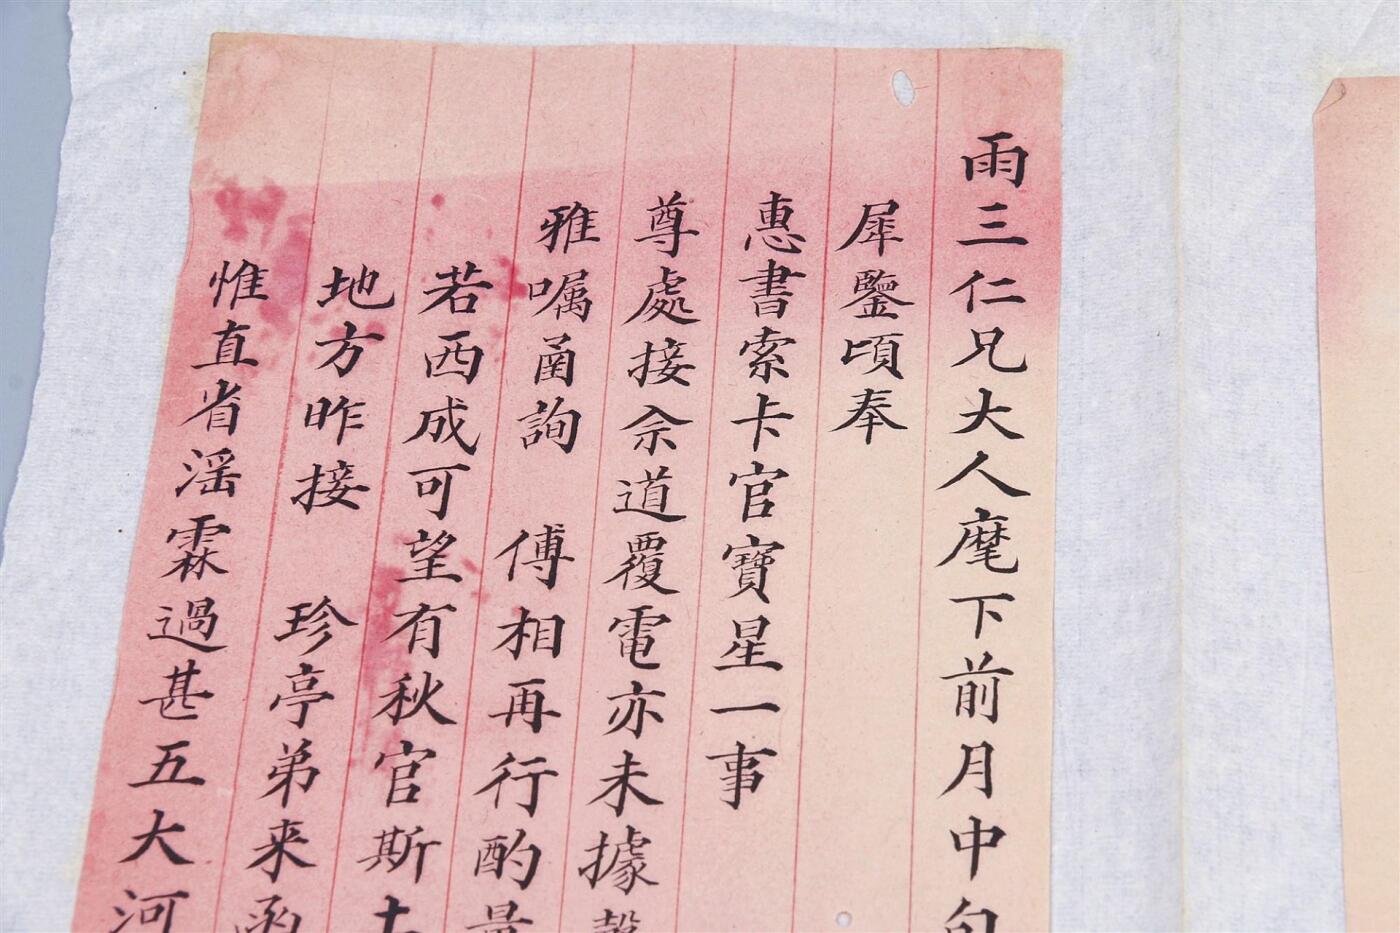 雨三仁兄大人麾下前月中旬
犀鑒頃奉
惠書索卡官寶星一事
尊處接佘道覆電亦未據
雅嘱函詢 傅相再行酌量
若西成可望有秋官斯土
地方昨接 珍亭弟来函
惟直省滛霖過甚五大河